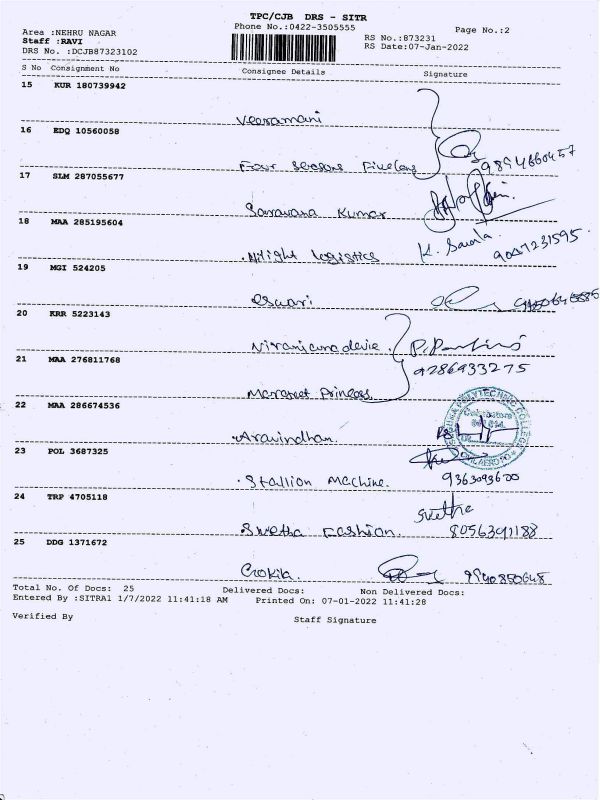 TPC/CJB DRS - SITR
Phone No.:0422-3505555
Page No.:2
Area :NEHRU NAGAR
Staff :RAVI
DRS No. :DCJB87323102
RS No.:873231
RS Date:07-Jan-2022
S No Consignment No Consignee Details Signature
15 KUR 180739942
Veeramani
16 EDQ 10560058
Four Seasons
9894660457
17 SLM 287055677
Saravana Kumar
18 MAA 285195604
Nilight logistics K. Sarala
19 MGI 524205
Eswari
20 KRR 5223143
9286933275
21 MAA 276811768
Margaret Princess
22 MAA 286674536
POLYTECHNIC COLLEGE
Aravindhan.
23 POL 3687325
Stallion Machine. 9363093600
24 TRP 4705118
Swetha
Swetha Fashion. 8056391188
25 DDG 1371672
Gokila. 9940850648
Total No. Of Docs: 25 Delivered Docs: Non Delivered Docs:
Entered By :SITRA1 1/7/2022 11:41:18 AM Printed On: 07-01-2022 11:41:28
Verified By Staff Signature